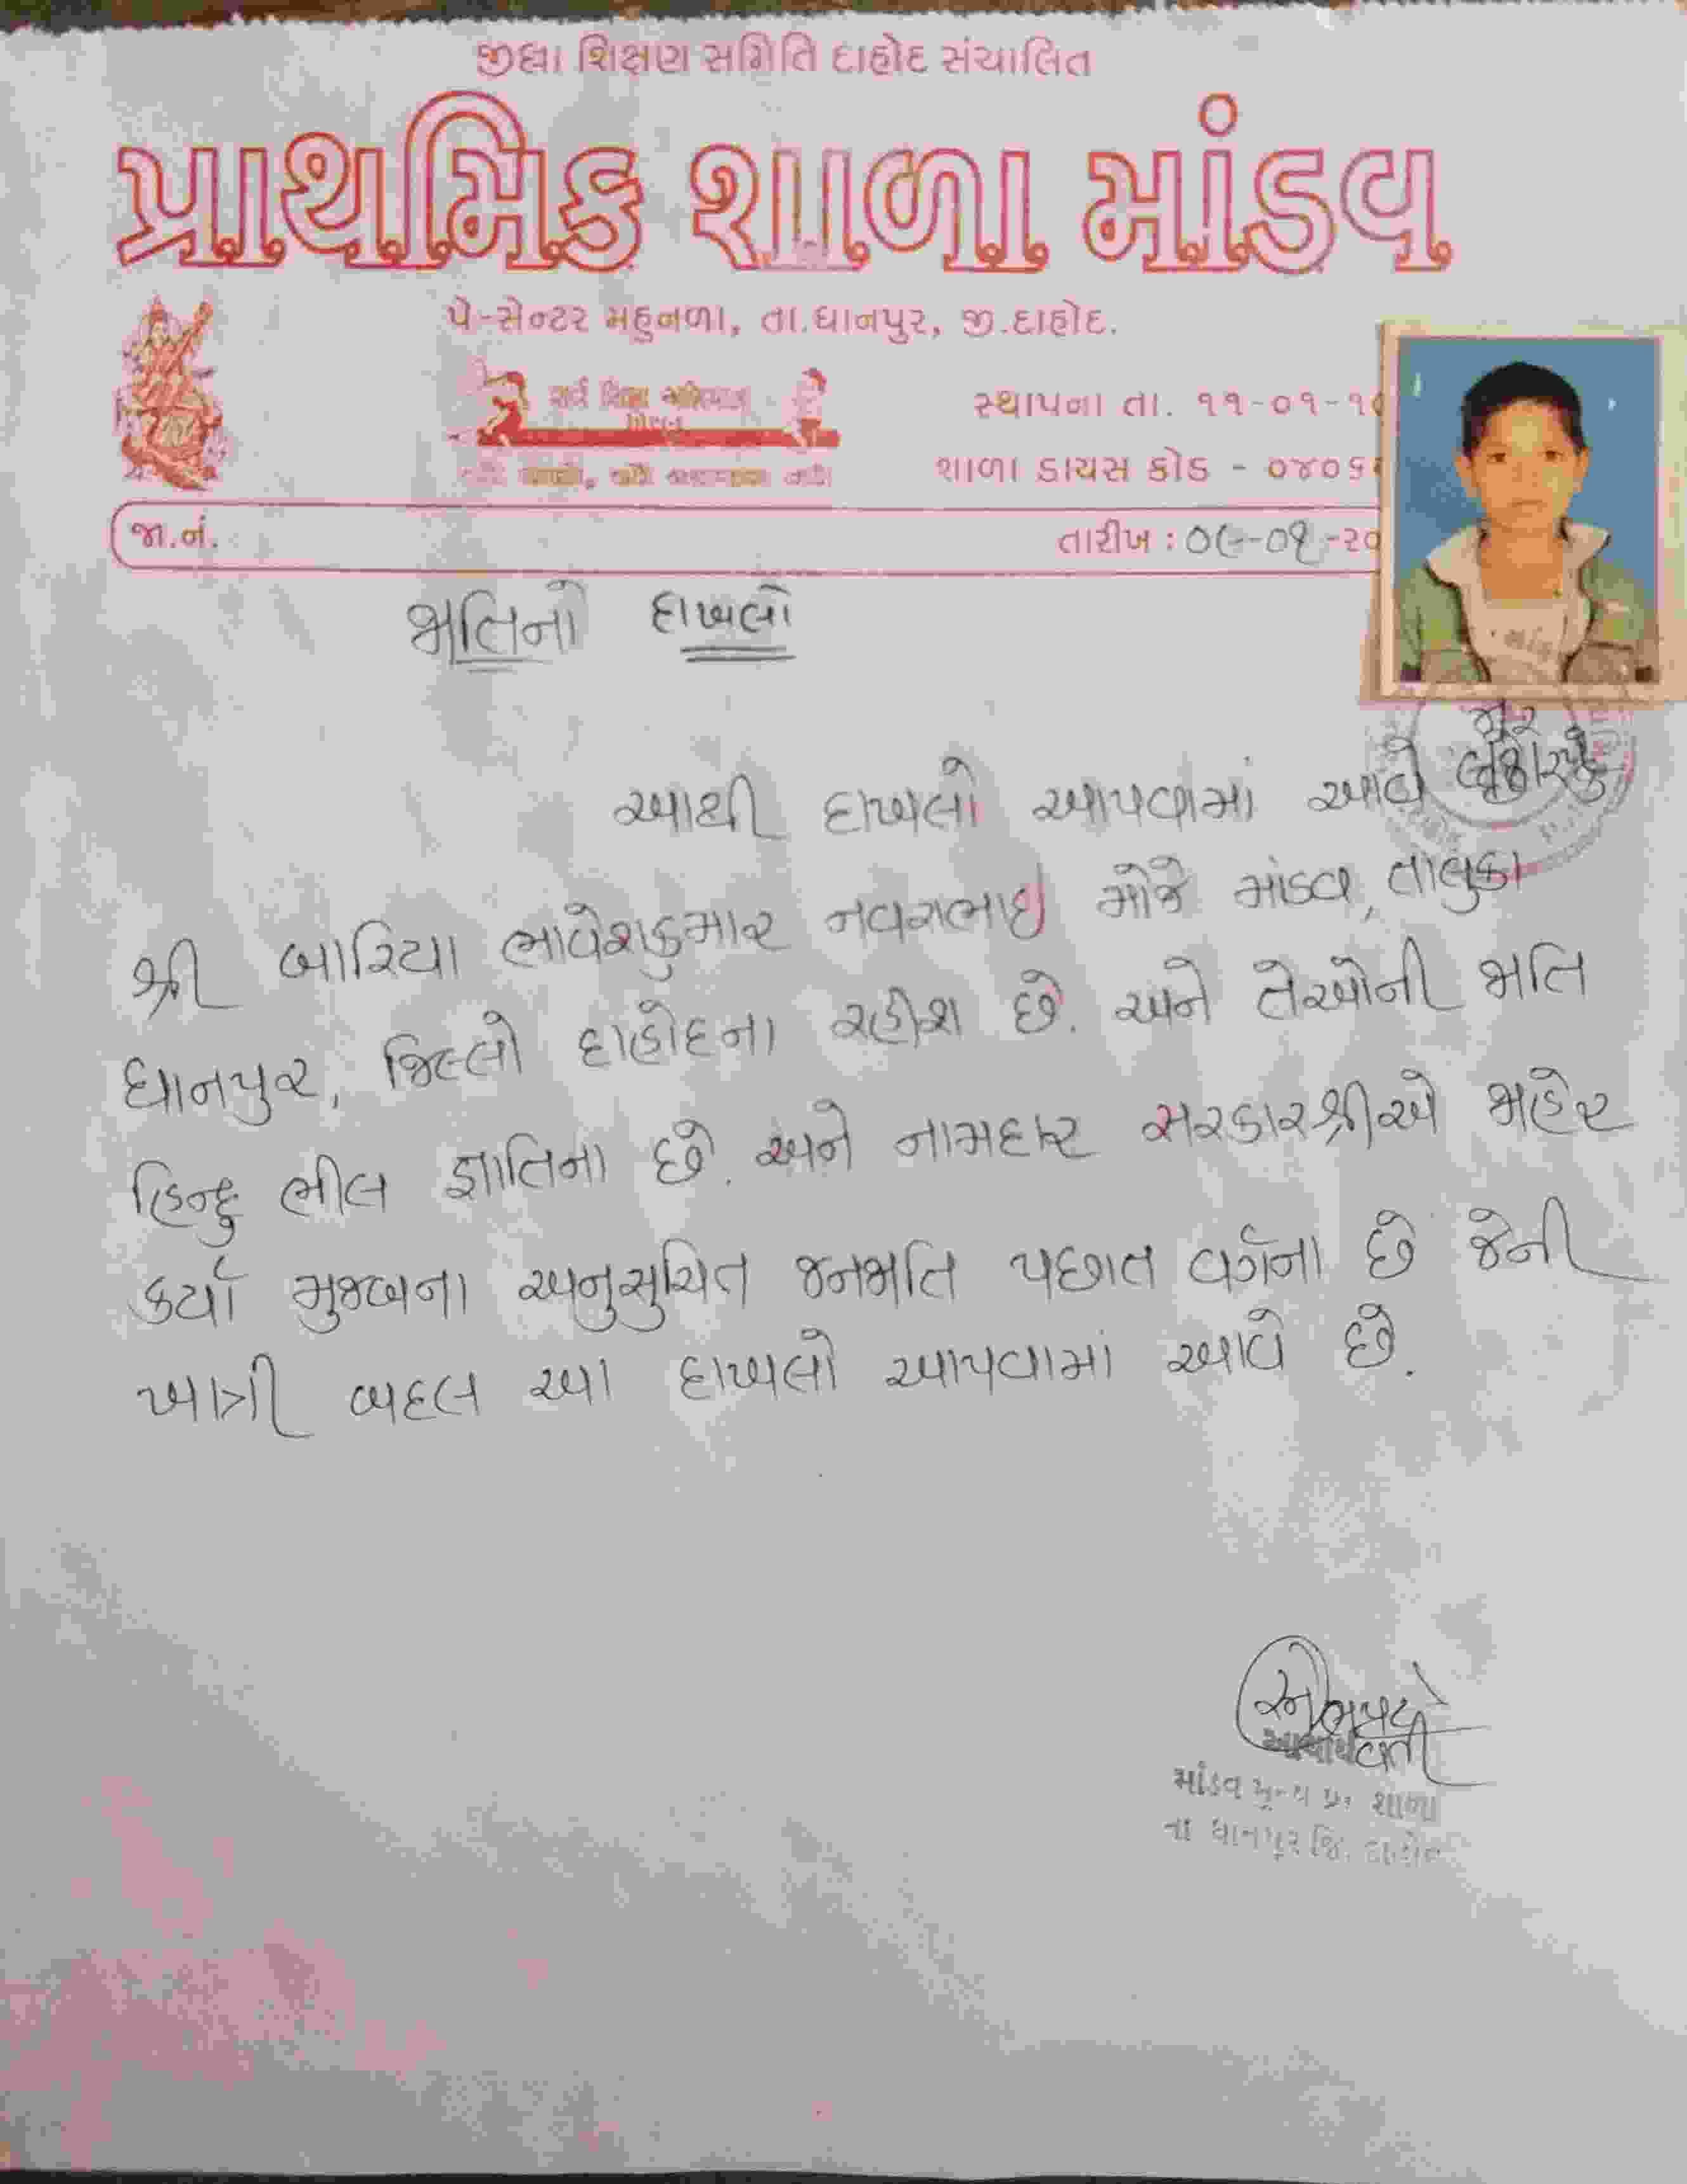 જીલ્લા શિક્ષણ સમિતિ દાહોદ સંચાલિત
પ્રાથમિક શાળા માંડવ
પે-સેન્ટર મહુનાળા, તા.ધાનપુર, જી.દાહોદ.
સર્વ શિક્ષા અભિયાન
મિશન
સ્થાપના તા. ૧૧-૦૧-૧૯
શાળા ડાયસ કોડ - ૦૪૦૬
જા.નં.
તારીખ : ૦૯-૦૧-૨૦
જાતિનો દાખલો
આથી દાખલો આપવામાં આવે
શ્રી બારિયા ભાવેશકુમાર મોજે માંડવ, તાલુકા
ધાનપુર, જિલ્લો દાહોદના રહીશ છે. અને તેઓની જાતિ
હિન્દુ ભીલ જ્ઞાતિના છે. અને નામદાર સરકારશ્રીએ જાહેર
કર્યા મુજબના અનુસુચિત જનજાતિ પછાત વર્ગના છે જેની
ખાત્રી બદલ આ દાખલો આપવામાં આવે છે.
આચાર્ય
માંડવ મુખ્ય પ્રા. શાળા
તા ધાનપુર જિ. દાહોદ